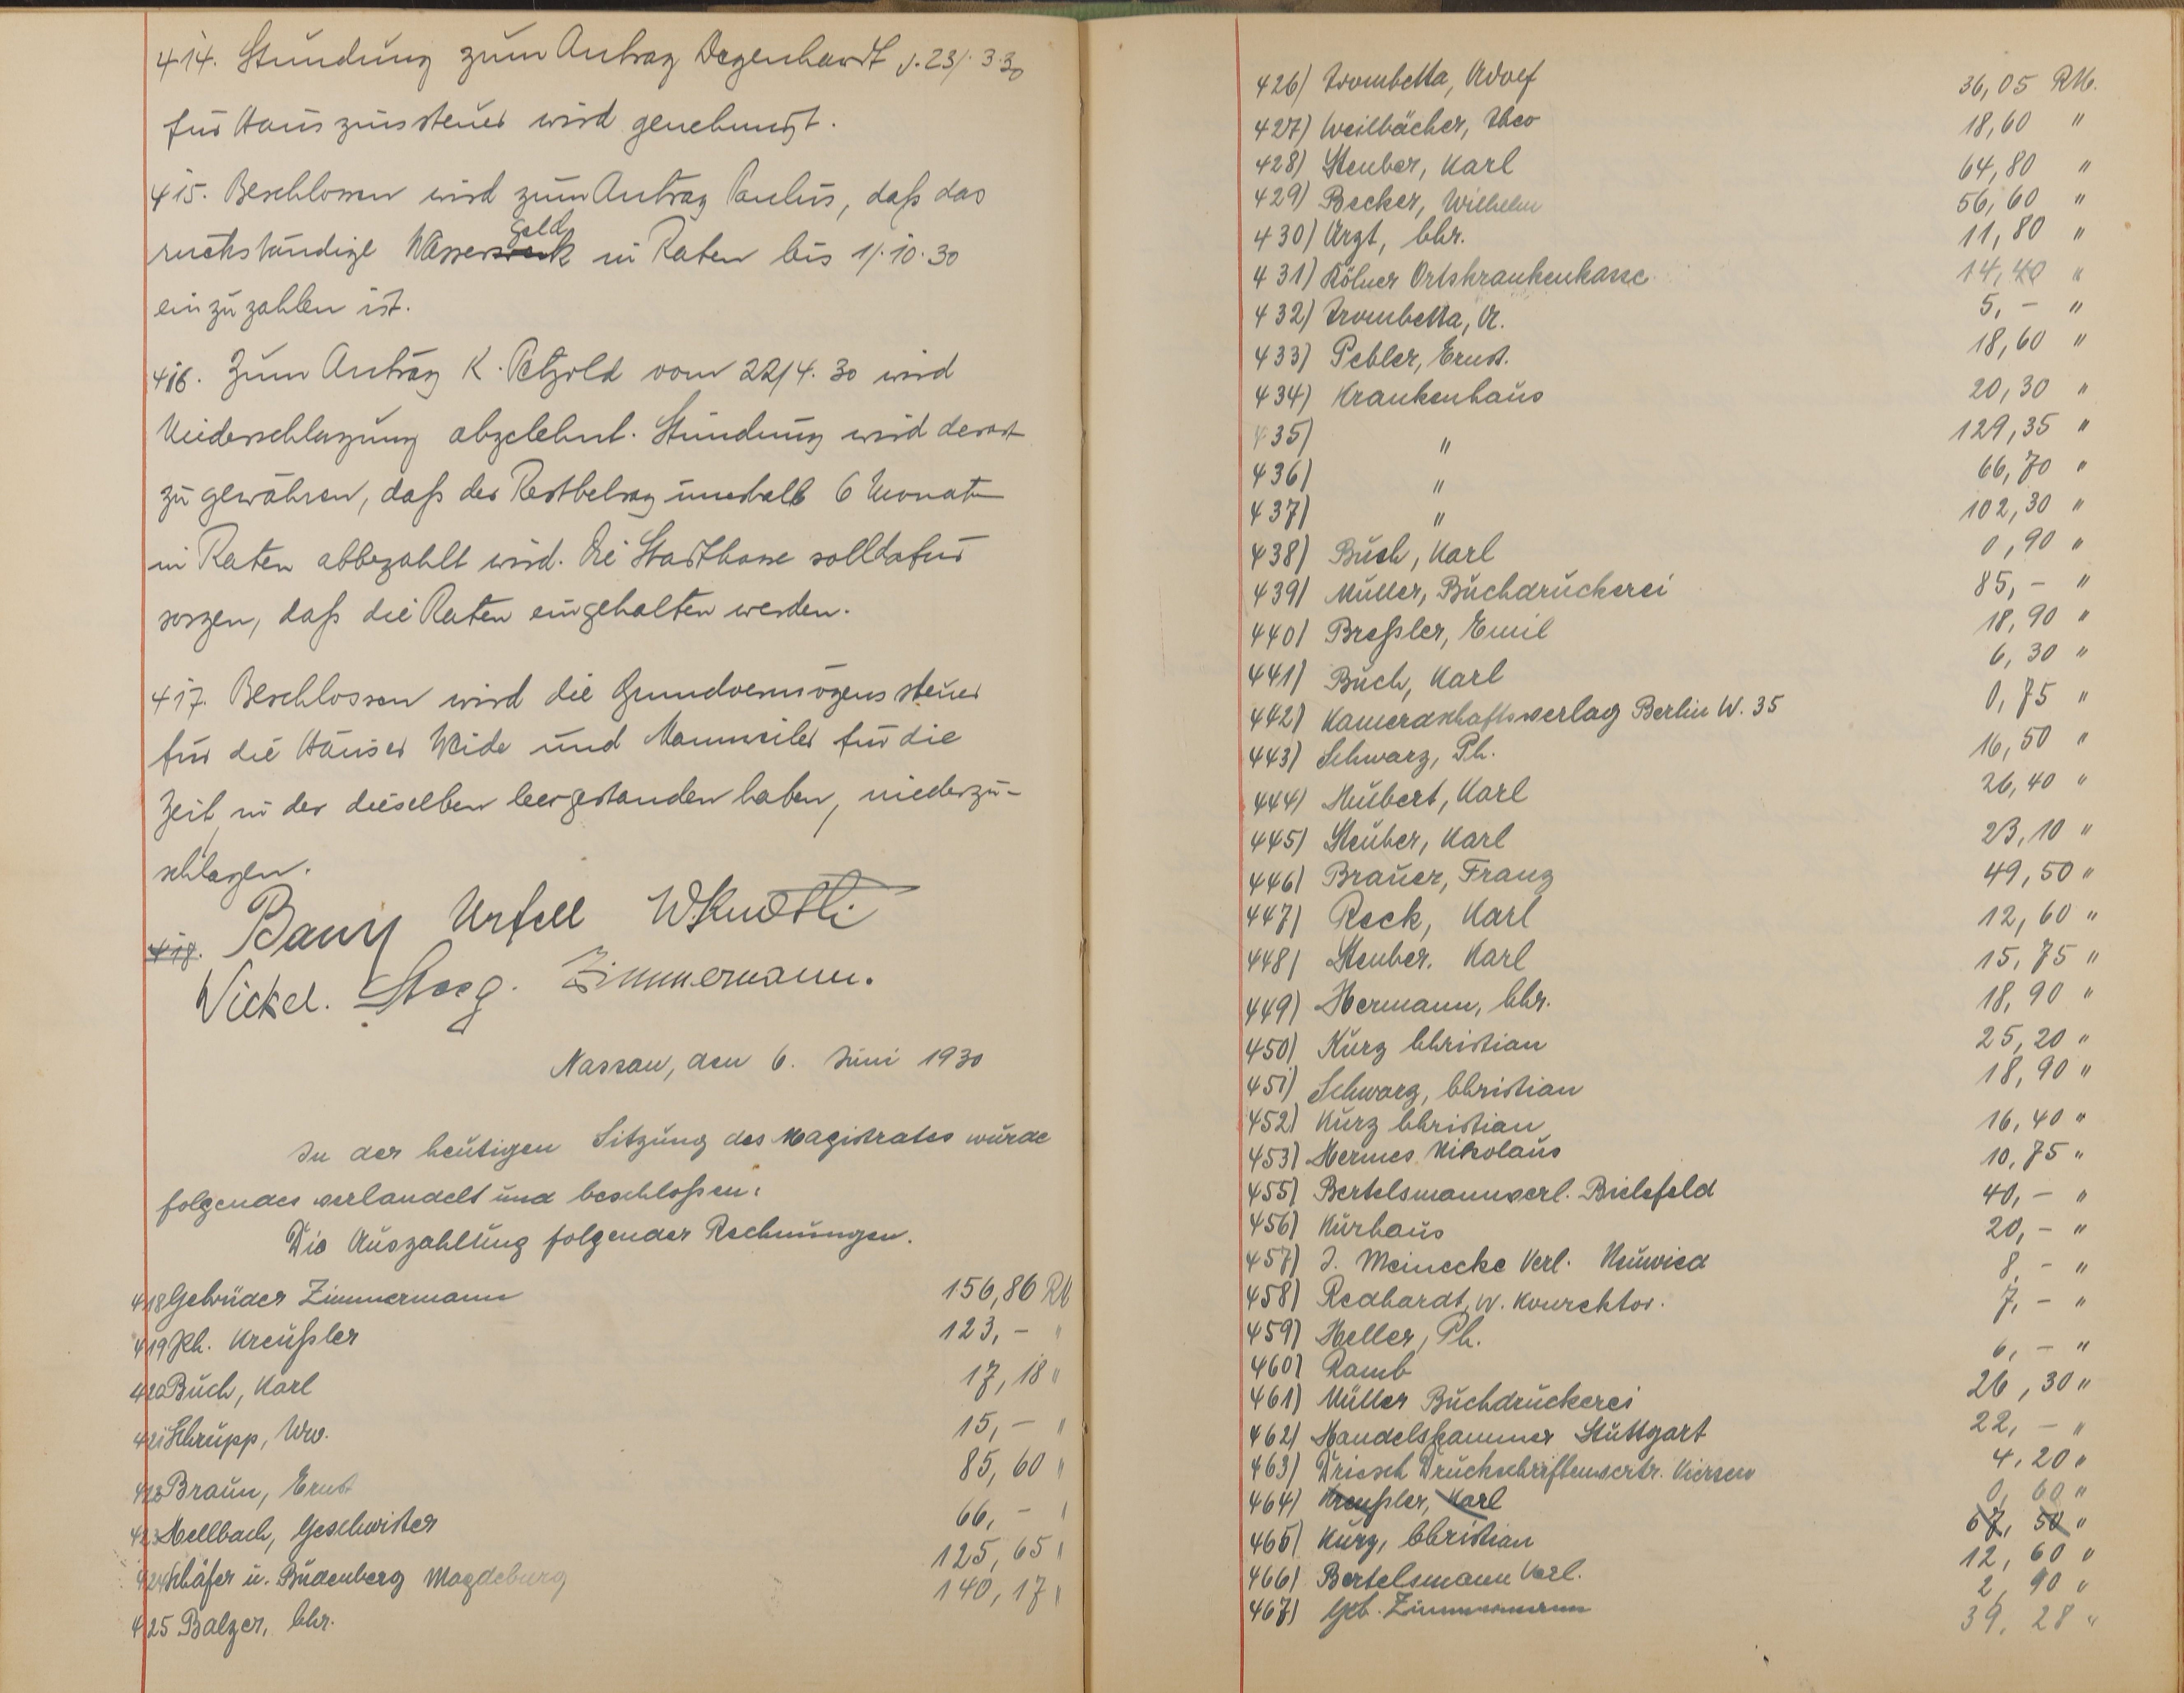 414. Stundung zum Antrag Degenhardt v. 23/. 3. 30
für Hauszinssteuer wird genehmigt.
415. Beschlossen wird zum Antrag Paulus, daß das
rückständige Wassergeld in Raten bis 1/. 10. 30
einzuzahlen ist.
416. Zum Antrag K. Petzold vom 22/4. 30 wird
Niederschlagung abgelehnt. Stundung wird derart
zu gewähren, daß der Restbetrag innerhalb 6 Monaten
in Raten abbezahlt wird. Die Stadtkasse soll dafür
sorgen, daß die Raten eingehalten werden.
417. Beschlossen wird die Grundvermögenssteuer
für die Häuser Weide und Mannweiler für die
Zeit, in der dieselben leergestanden haben, niederzu-
schlagen.
418. Urfell
Zimmermann.
Nassau, den 6. Juni 1930
In der heutigen Sitzung des Magistrates wurde
folgendes verhandelt und beschloßen:
Die Auszahlung folgender Rechnungen.
418 Gebrüder Zimmermann 156,86 RM
419 Ph. Kreußler 123,- "
420 Buch, Karl 17,18 "
421 Schrupp, Ww. 15,- "
422 Braun, Ernst 85,60 "
423 Mellbach, Geschwister 66,- "
424 Schäfer u. Budenberg Magdeburg 125,65 "
425 Balzer, Chr. 140,17 "
426) Trombetta, Adolf 36,05 RM.
427) Weilbächer, Theo 18,60 "
428) Steuber, Karl 64,80 "
429) Becker, Wilhelm 56,60 "
430) Arzt, Chr. 11,80 "
431) Kölner Ortskrankenkasse 14,40 "
432) Trombetta, A. 5,- "
433) Pebler, Ernst. 18,60 "
434) Krankenhaus 20,30 "
435) " 129,35 "
436) " 66,70 "
437) " 102,30 "
438) Buch, Karl 0,90 "
439) Müller, Buchdruckerei 85,- "
440) Breßler, Emil 18,90 "
441) Buch, Karl 6,30 "
442) Kameradschaftsverlag Berlin W. 35 0,75 "
443) Schwarz, Ph. 16,50 "
444) Karl 26,40 "
445) Steuber, Karl 23,10 "
446) Brauer, Franz 49,50 "
447) Reck, Karl 12,60 "
448) Steuber. Karl 15,75 "
449) Hermann, Chr. 18,90 "
450) Kurz Christian 25,20 "
451) Schwarz, Christian 18,90 "
452) Kurz Christian 16,40 "
453) Hermes Nikolaus 10,75 "
455) Bertelsmannverl. Bielefeld 40,- "
456) Kurhaus 20,- "
457) J. Meinecke Verl. Neuwied 8,- "
458) Redhardt, W. Konrektor. 7,- "
459) Heller, Ph. 6,- "
460) Ramb 26,30 "
461) Müller Buchdruckerei 22,- "
462) Handelskammer Stuttgart 4,20 "
463) Driesch Druckschriftenvertr. Viersen 0,60 "
464) Kreußler, Karl 67,50 "
465) Kurz, Christian 12,60 "
466) Bertelsmann Verl. 2,90 "
467) Geb. Zimmermann 39,28 "